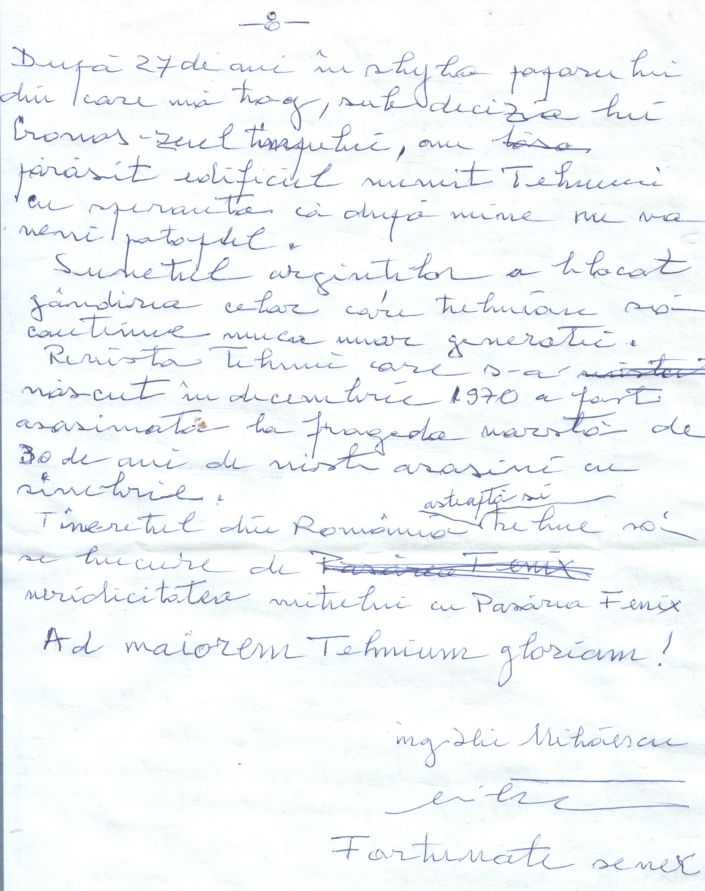 — 8 —
După 27 de ani în slujba papirusului
din care mă trag, sub decizia lui
Cronos-zeul timpului, am
părăsit edificiul numit Tehnium
cu speranța că după mine nu va
veni potopul.
Sunetul arginților a blocat
gândirea celor care trebuiau să
continue munca unor generații.
Revista Tehnium care s-a
născut în decembrie 1970 a fost
asasinată la frageda vârstă de
30 de ani de niște asasini cu
simbrie.
așteaptă și
Tineretul din România trebue să
se bucure de Pasărea Fenix
veridicitatea mitului cu Pasărea Fenix
Ad maiorem Tehnium gloriam!
ing Ilie Mihăescu
Fortunate senex